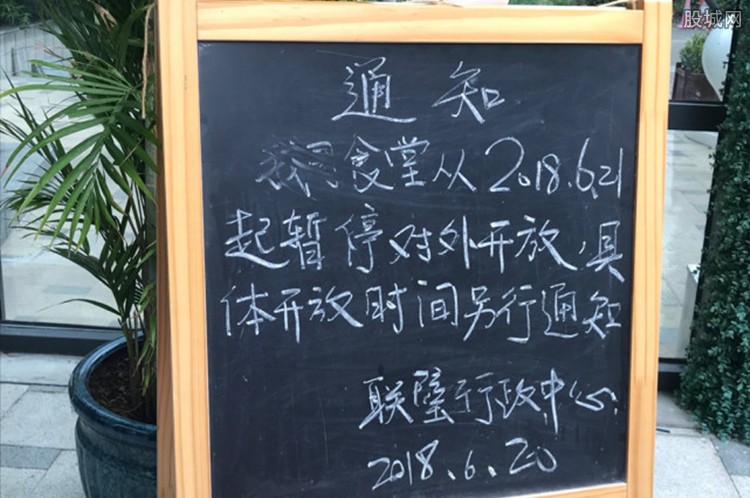 股城网
通知
我司食堂从2018.6.21
起暂停对外开放,具
体开放时间另行通知
联璧行政中心.
2018.6.20